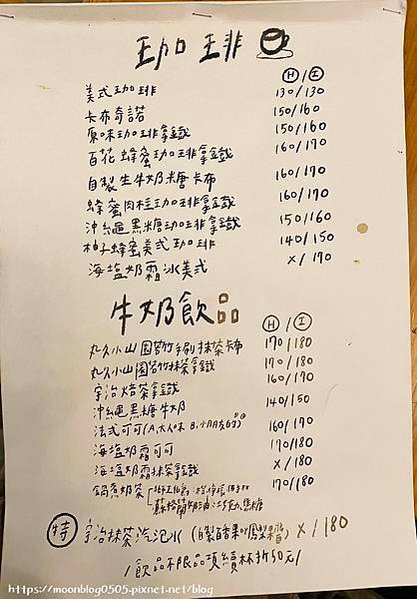 珈琲
H/I
美式珈琲 130/130
卡布奇諾 150/160
原味珈琲拿鐵 150/160
百花蜂蜜珈琲拿鐵 160/170
自製生牛奶糖卡布 160/170
蜂蜜肉桂珈琲拿鐵 160/170
沖繩黑糖珈琲拿鐵 150/160
柚子蜂蜜美式珈琲 140/150
海塩奶霜冰美式 x/170
牛奶飲品
H/I
丸久小山園若竹手刷抹茶卡布 170/180
丸久小山園若竹抹茶拿鐵 170/180
宇治焙茶拿鐵 160/170
沖繩黑糖牛奶 140/150
法式可可(A.大人味 B.小朋友的) 160/170
海塩奶霜可可 170/180
海塩奶霜抹茶拿鐵 x/180
鍋煮奶茶 170/180
特 宇治抹茶汽泡冰 (自製 or鳳梨) x/180
/飲品不限品項續杯折50元/
https://moonblog0505.pixnet.net/blog